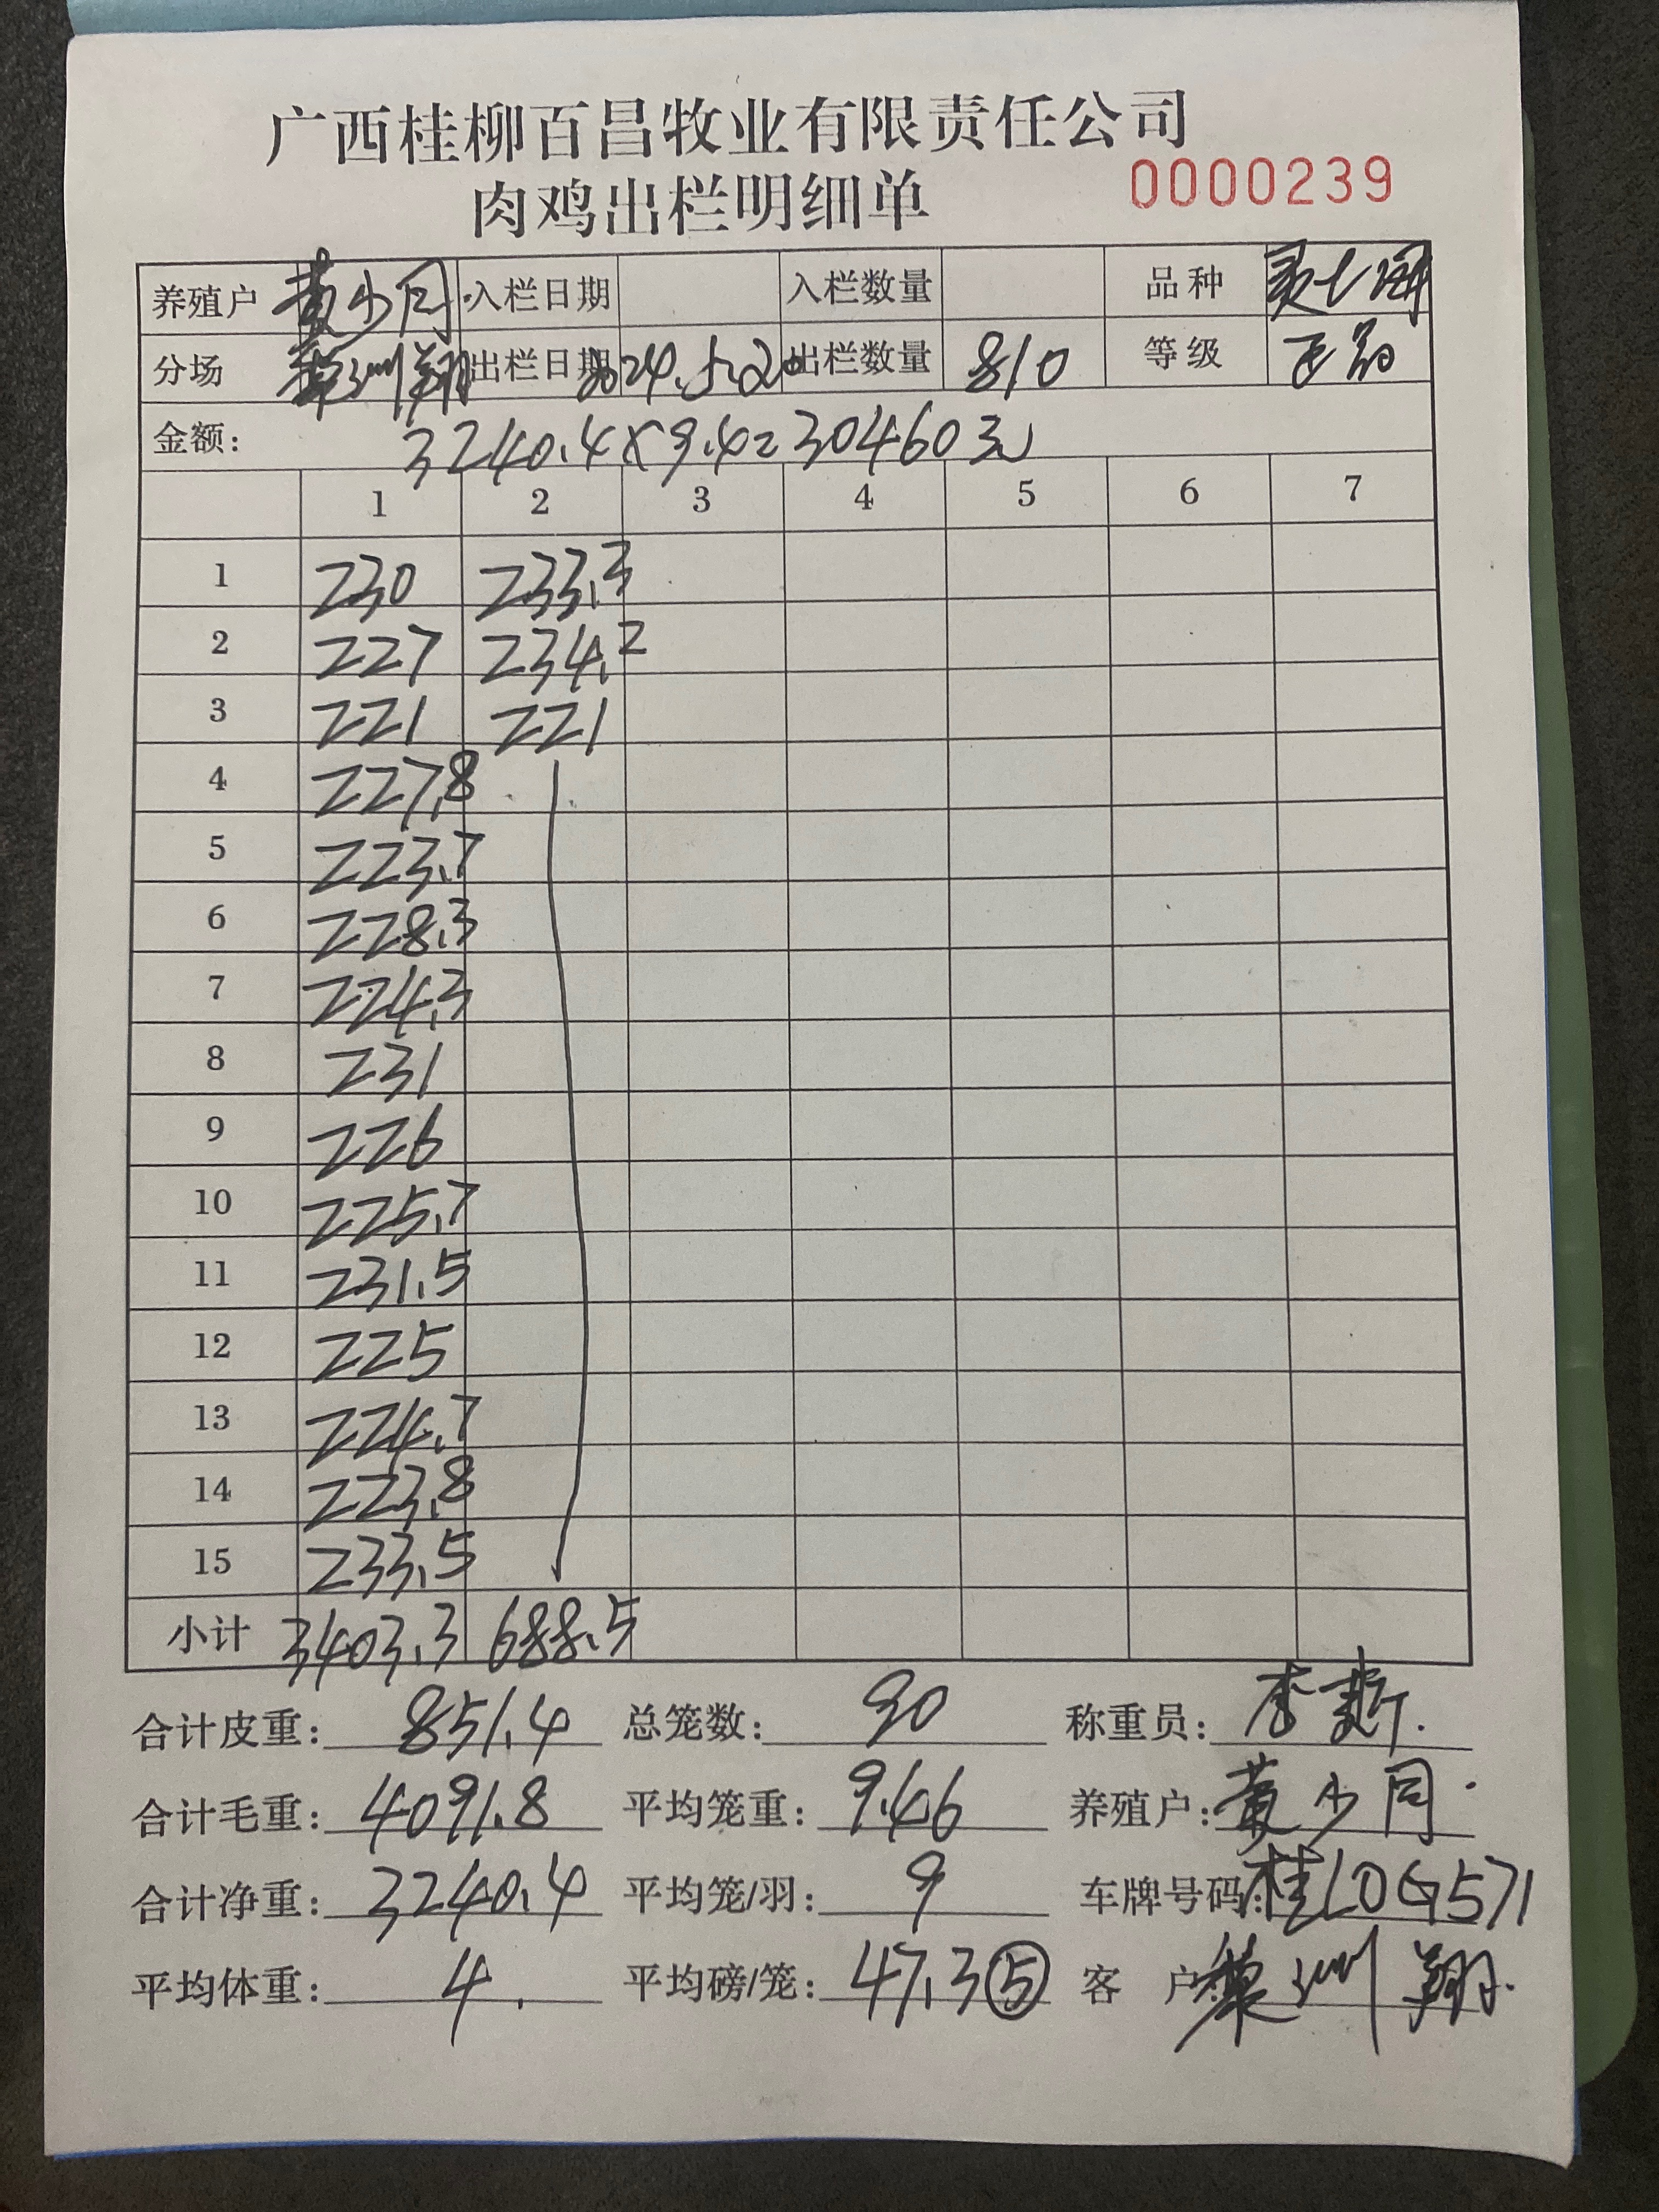 广西桂柳百昌牧业有限责任公司
肉鸡出栏明细单 0000239
养殖户 黄少同 入栏日期 入栏数量 品种
分场 黎洲翔 出栏日期 2024.5.20 出栏数量 810 等级 正品
金额: 3240.4×9.4=30460元
1 2 3 4 5 6 7
1 230 233.3
2 227 234.2
3 221 221
4 227.8
5 223.7
6 228.3
7 224.3
8 231
9 226
10 225.7
11 231.5
12 225
13 224.7
14 223.8
15 233.5
小计 3403.3 688.5
合计皮重: 851.4 总笼数: 90 称重员: 李
合计毛重: 4091.8 平均笼重: 9.46 养殖户: 黄少同
合计净重: 3240.4 平均笼/羽: 9 车牌号码: 桂L0G571
平均体重: 4. 平均磅/笼: 47.3⑤ 客户: 黎洲翔